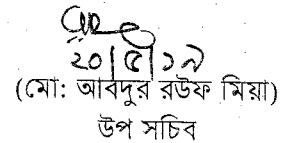 ২০|৫|১৯
(মো: আবদুর রউফ মিয়া)
উপ সচিব